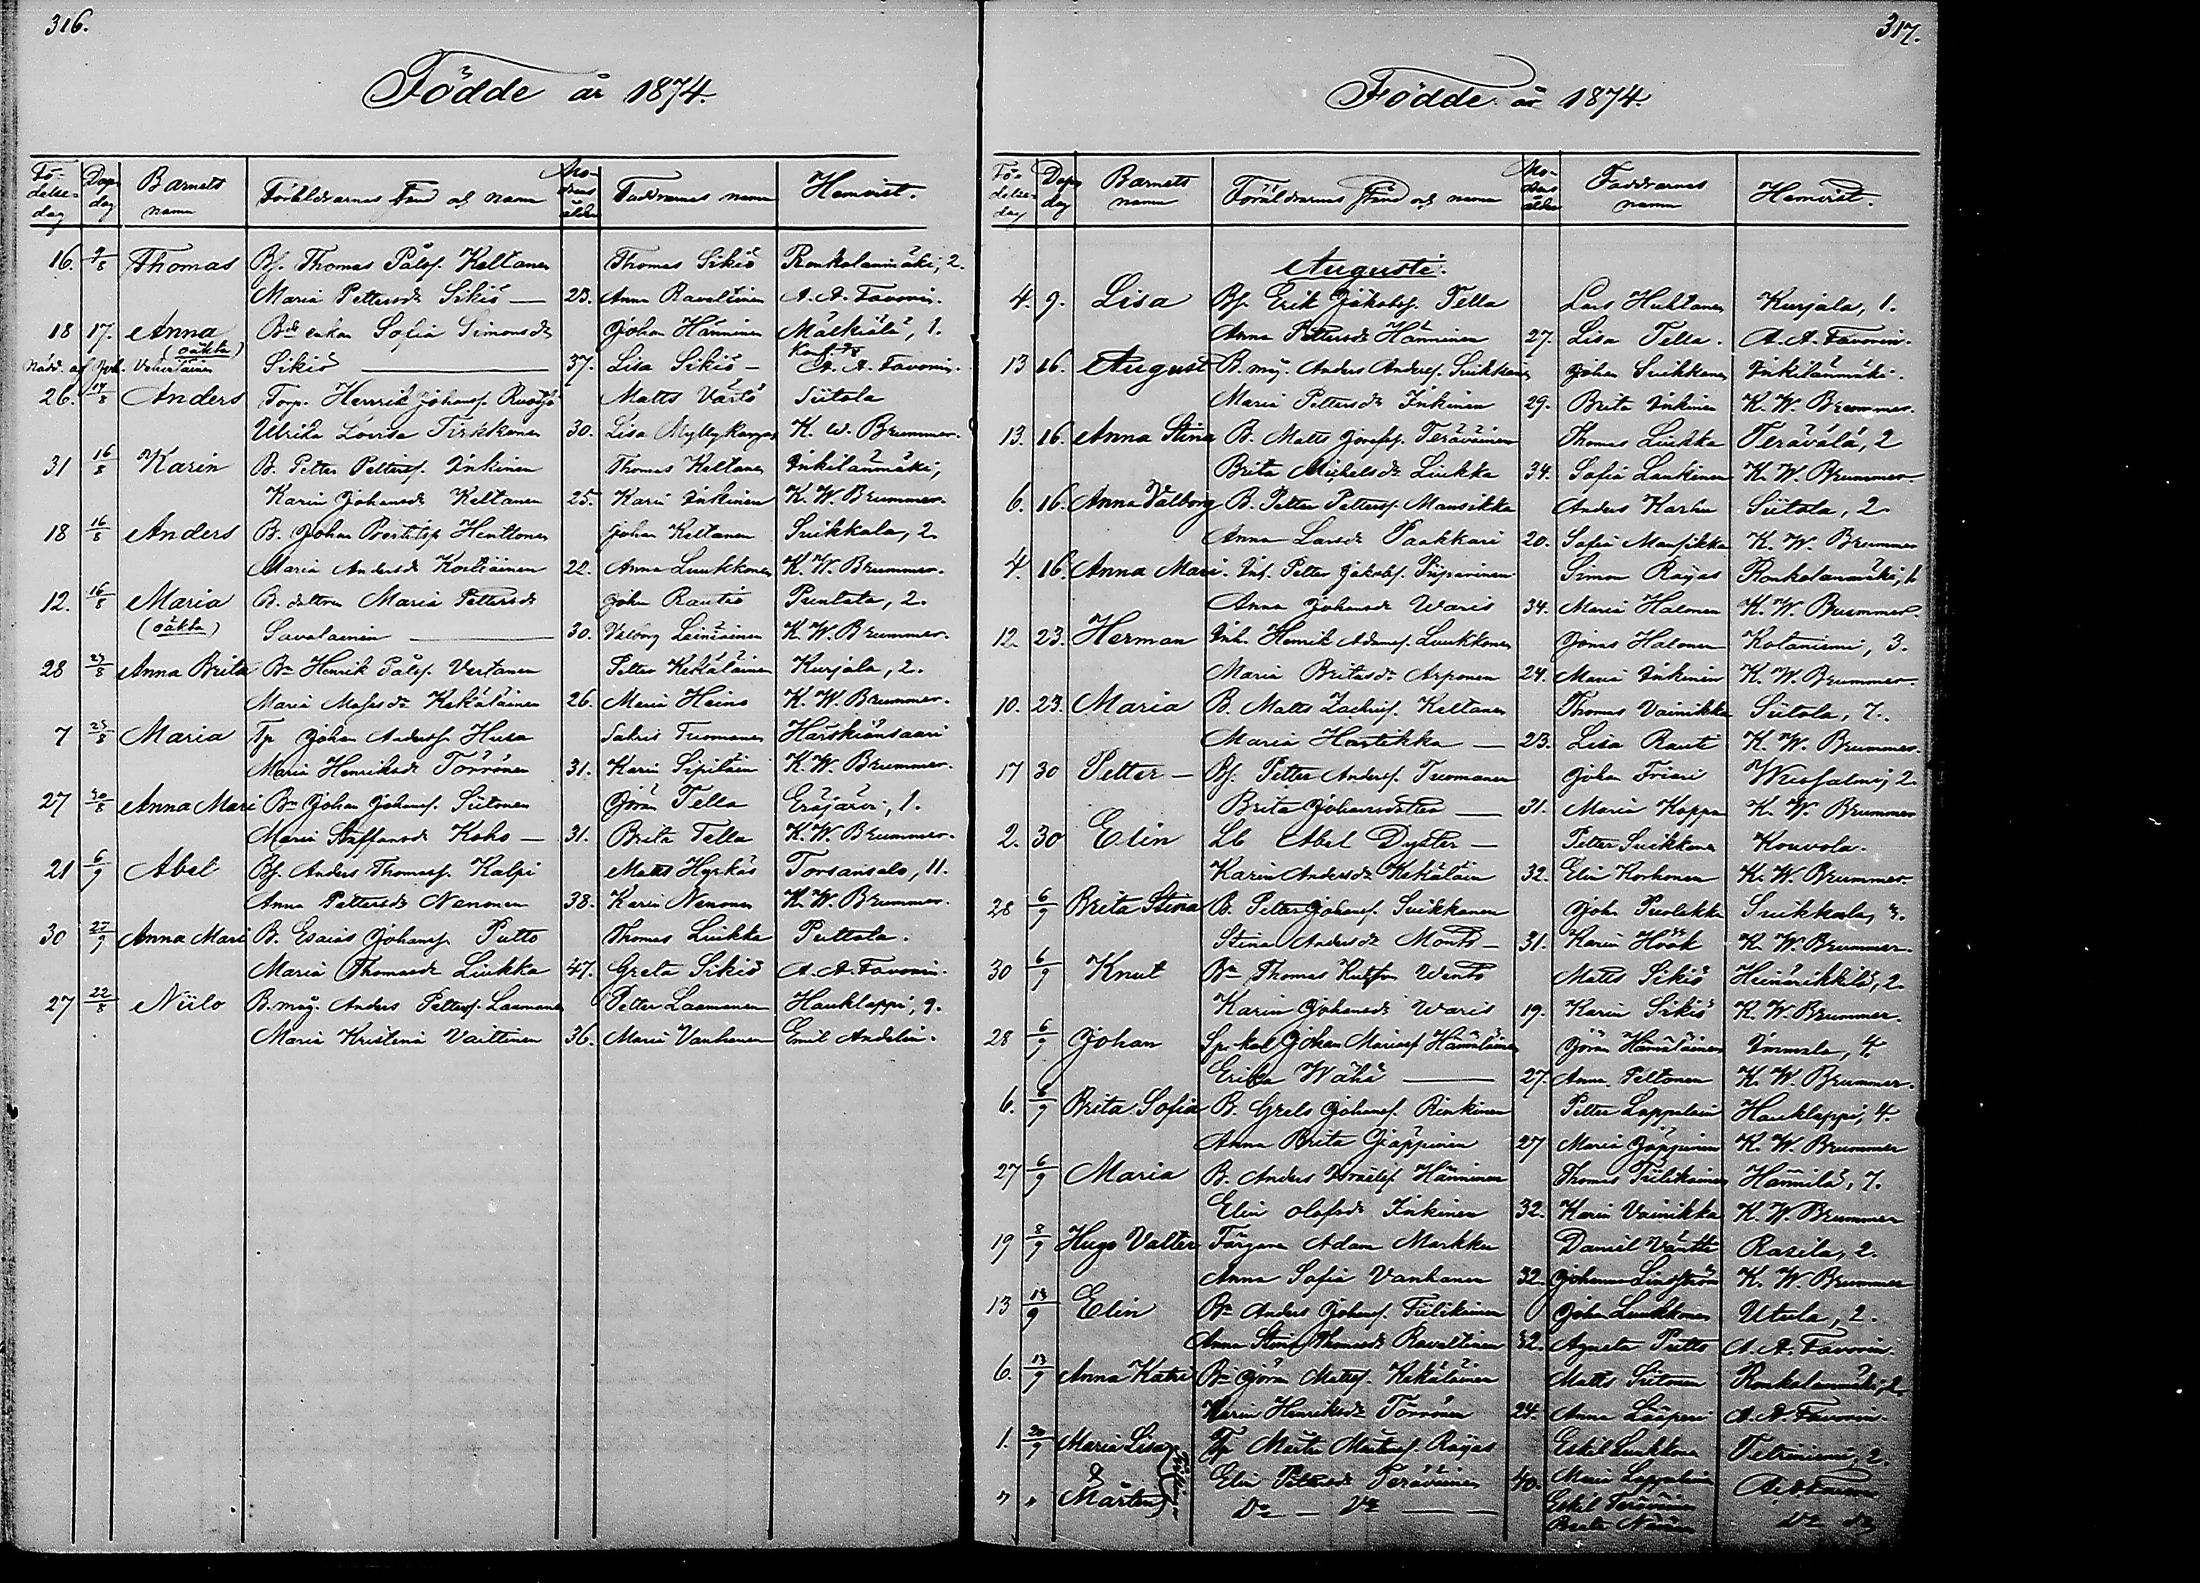 316.
Födde år 1874.
Fö-
delse-
dag
Dop
dag
Barnets
namn
Föräldrarnas stånd och namn
Mo-
drens
ålder
Faddrarnes namn
Hemvist.
16. 9/8 Thomas Bf. Thomas Pålsf. Keltanen Thomas Sikiö Ronkalanmäki, 2.
Maria Pettersdr Sikiö — 23. Anna Ravattinen A. A. Favorin.
18 17. Anna Bde enkan Sofia Simonsdr Johan Hänninen Mälkiälä, 1.
(oäkta)
Sikiö — 37. Lisa Sikiö — A. A. Favorin.
26. 14/8 Anders Torp. Henrik Johansf. Matts Siitola
Ulrika Lovisa Tirkkonen 30. Lisa Myllykangas K. W. Brummer.
31 16/8 Karin B. Petter Pettersf. Inkinen Thomas Keltanen Inkilänmäki,
Karin Johansdr Keltanen 25. Karin Inkinen K. W. Brummer.
18 16/8 Anders B. Johan Bertilsf Henttonen Johan Keltanen Suikkala, 2.
Maria Andersdr Kostiainen 22. Anna Luukkonen K. W. Brummer.
12. 16/8 Maria B. dottren Maria Pettersdr Johan Rautio Puntala, 2.
(oäkta) Savolainen — 30. Valborg Leinäinen K. W. Brummer.
28 23/8 Anna Brita Bn Henrik Pålsf. Vertanen Petter Kekäläinen Kurjala, 2.
Maria Mosesdr Kekäläinen 26. Maria Heino K. W. Brummer.
7 23/8 Maria Tp Johan Andersf. Husa Sakris Tuomanen Härskiänsaari
Maria Henriksdr Törrönen 31. Karin Sipiläin K. W. Brummer.
27 30/8 Anna Mari Bn Johan Johansf. Siitonen Jöran Tella Eräjärvi, 1.
Maria Staffansdr Koho — 31. Brita Tella K. W. Brummer.
21 6/9 Abel Bf. Anders Thomasf. Kalpi Matts Hyrkäs Torsansalo, 11.
Anna Pettersdr Nenonen 38. Karin Nenonen K. W. Brummer.
30 27/9 Anna Mari B. Esaias Johansf. Putto Thomas Liukka Puttola.
Maria Thomasdr Liukka 47. Greta Sikiö A. A. Favorin.
27 22/8 Niilo B. måg. Anders Pettersf. Laamanen Petter Laamanen Hauklappi, 9.
Maria Kristina Vaittinen 36. Maria Vanhanen Emil Andelin.
317.
Födde år 1874.
Fö-
delse-
dag
Dop
dag
Barnets
namn
Föräldrarnas stånd och namn
Mo-
drens
ålder
Faddrarnes
namn
Hemvist.
Augusti.
4. 9. Lisa Bf. Erik Jakobsf. Tella Lars Huhtanen Kurjala, 1.
Anna Pettersdr Hänninen 27. Lisa Tella. A. A. Favorin.
13 16. August B. måg. Anders Andersf. Suikkanen Johan Suikkanen Inkilänmäki.
Maria Pettersdr Inkinen 29. Brita Inkinen K. W. Brummer.
13. 16. Anna Stina B. Matts Josefsf. Teräväinen Thomas Liukka Terävälä, 2
Brita Michelsdr Liukka 34. Sofia Laukinen K. W. Brummer.
6. 16. Anna Valborg B. Petter Pettersf. Mansikka Anders Karhu Siitola, 2
Anna Larsdr Paakkari 20. Sofia Mansikka K. W. Brummer
4. 16. Anna Mari. Inh. Petter Jakobsf. Piiparinen Simon Rajas Ronkalanmäki, 1
Anna Johansdr Waris 34. Maria Halonen K. W. Brummer.
12. 23. Herman Inh. Henrik Adamsf. Luukkonen Jonas Halonen Kotaniemi, 3.
Maria Britasdr Arponen 24. Maria Inkinen K. W. Brummer.
10. 23. Maria B. Matts Zachrisf. Keltanen Thomas Vainikka Siitola, 7.
Maria Hartikka — 23. Lisa Rauti K. W. Brummer.
17 30 Petter — Bf. Petter Andersf. Tuomanen Johan Friari 2.
Brita Johansdotter — 31. Maria Kappa K. W. Brummer
2. 30 Elin Lb Abel Dyster — Petter Suikkanen Kouvola.
Karin Andersdr Kekäläin 32. Elin Korhonen K. W. Brummer.
28 6/9 Brita Stina B. Petter Johansf. Suikkanen Joh. Puolakka Suikkala, 3.
Stina Andersdr Monto — 31. Karin Höök K. W. Brummer.
30 6/9 Knut Bn Thomas Knutsson Wento Matts Sikiö Heinärikkilä, 2.
Karin Johansdr Waris 19. Karin Sikiö K. W. Brummer.
28 6/9 Johan Sp. karl Johan Mariasf Hämäläinen Jöran Hämäläinen Immala, 4.
Erika Wähä — 27. Anna Peltonen K. W. Brummer.
6. 6/9 Brita Sofia B. Grels Johansf. Rinkinen Petter Lappalain Hauklappi, 4.
Anna Brita Jäppinen 27 Maria Jäppinen K. W. Brummer
27 6/9 Maria B. Anders Israelsf Hänninen Thomas Tiilikainen Hännilä, 7.
Elin Olofsdr Inkinen 32. Karin Vainikka K. W. Brummer
19 8/9 Hugo Valter Färgare Adam Markku Daniel Väntti Rasila, 2.
Anna Sofia Vanhanen 32. Johanna Lindström K. W. Brummer
13 13/9 Elin Bn Anders Johansf. Tiilikainen Johan Luukkonen Utula, 2.
Anna Stina Thomasdr Ravattinen 32. Agneta Putto A. A. Favorin.
6. 13/9 Anna Katri Bn Jöran Mattsf. Kekäläinen Matts Siitonen Ronkalanmäki, 2
Karin Henriksdr Törrönen 24. Anna Lääperi A. A. Favorin.
1. 20/9 Maria Lisa Tp Mårten Mårtensf. Rajas Eskil Luukkonen Petriniemi, 2.
& Elin Pettersdr Teräväinen 40. Maria Lappalain A. A. Favorin
" " Mårten Do — Do — — Eskil Teräväinen
Brita Do Do